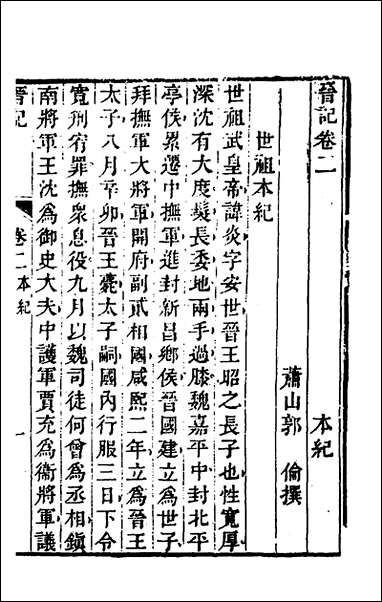 晉記卷二
本紀
蕭山郭　倫撰
世祖本紀
世祖武皇帝諱炎字安世晉王昭之長子也性寬厚
深沈有大度髮長委地兩手過膝魏嘉平中封北平
亭侯累遷中撫軍進封新昌鄉侯晉國建立爲世子
拜撫軍大將軍開府副貳相國咸熙二年立爲晉王
太子八月辛卯晉王薨太子嗣國內行服三日下令
寬刑宥罪撫衆息役九月以魏司徒何曾爲丞相鎭
南將軍王沈爲御史大夫中護軍賈充爲衞將軍議
晉記
卷二本紀
一